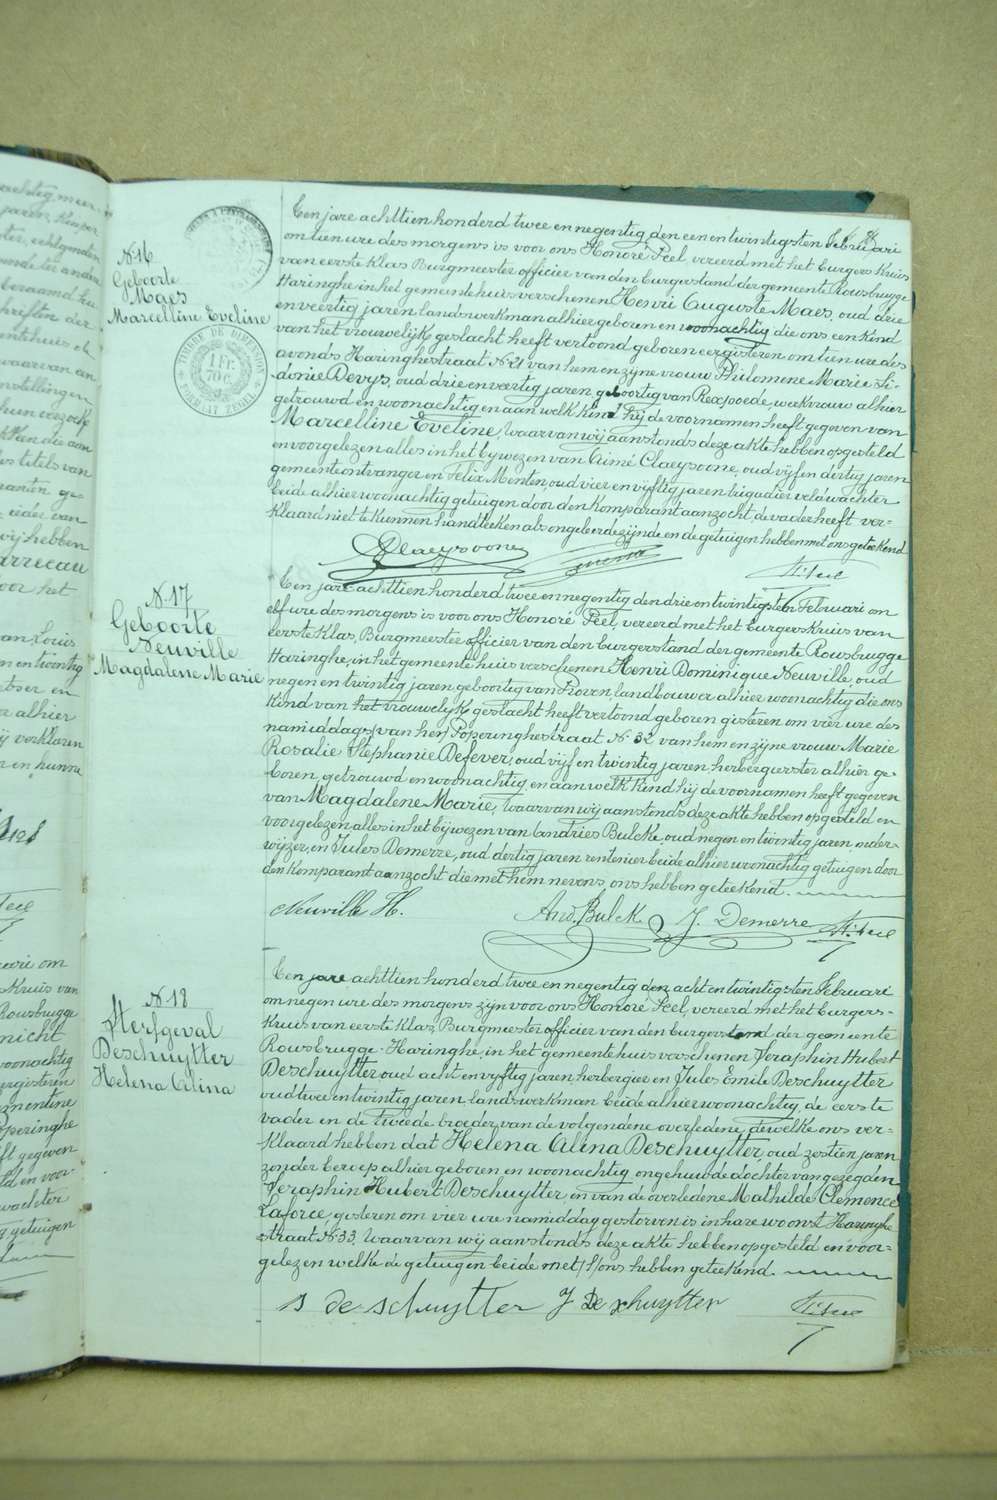 N. 16
Geboorte
Maes
Marcelline Eveline
TIMBRE DE DIMENSION
1 FR. 70 C.
FORMAAT ZEGEL
Een jare achttien honderd twee en negentig den een en twintigsten Februari
om tien ure des morgens is voor ons Honoré Peel, vereerd met het burgers Kruis
van eerste Klas Burgmeester officier van den burgerstand der gemeente Rousbrugge
Haringhe in het gemeentehuis verschenen Henri Auguste Maes, oud drie
en veertig jaren landswerkman alhier geboren en woonachtig die ons een kind
van het vrouwelijk geslacht heeft vertoond geboren eergisteren om tien ure des
avonds Haringhestraat N. 21 van hem en zijne vrouw Philomene Marie Si-
donie Devys, oud drie en veertig jaren geboortig van Rexpoede, werkvrouw alhier
getrouwd en woonachtig en aan welk kind hij de voornamen heeft gegeven van
Marcelline Eveline, waarvan wij aanstonds deze akte hebben opgesteld
en voorgelezen alles in het bywezen van Aimé Claeysoone, oud vijf en dertig jaren
gemeenteontvanger en Felix Menten, oud vier en vijftig jaren brigadier veldwachter
beide alhier woonachtig getuigen door den komparant aanzocht de vader heeft ver-
klaard niet te kunnen handteeken als ongeleerd zijnde en de getuigen hebben met ons geteekend
Claeysoone
H. Peel
N. 17
Geboorte
Neuville
Magdalene Marie
Een jare achttien honderd twee en negentig den drie en twintigsten Februari om
elf ure des morgens is voor ons Honoré Peel, vereerd met het burgers Kruis van
eerste Klas, Burgmeester officier van den burgerstand der gemeente Rousbrugge
Haringhe, in het gemeentehuis verschenen Henri Dominique Neuville, oud
negen en twintig jaren geboortig van Proven landbouwer alhier woonachtig die ons
kind van het vrouwelijk geslacht heeft vertoond geboren gisteren om vier ure des
namiddags (van her) Poperinghestraat N. 32 van hem en zijne vrouw Marie
Rosalie Stephanie Defever, oud vijf en twintig jaren, herbergierster alhier ge-
boren, getrouwd en woonachtig en aan welk kind hij de voornamen heeft gegeven
van Magdalene Marie, waarvan wij aanstonds deze akte hebben opgesteld en
voorgelezen alles in het bijwezen van Andries Bulcke, oud negen en twintig jaren, onder-
wijzer, en Jules Demerre, oud dertig jaren rentenier beide alhier woonachtig getuigen door
den komparant aanzocht die met hem nevens ons hebben geteekend.
Neuville H.
And. Bulck
J. Demerre
H. Peel
N. 18
Sterfgeval
Deschuytter
Helena Alina
Een jare achttien honderd twee en negentig den acht en twintigsten Februari
om negen ure des morgens zijn voor ons Honoré Peel, vereerd met het burgers-
Kruis van eerste Klas, Burgmeester officier van den burgerstand der gemeente
Rousbrugge-Haringhe, in het gemeentehuis verschenen Seraphin Hubert
Deschuytter oud acht en vyftig jaren herbergier en Jules Emile Deschuytter
oud twee en twintig jaren, landswerkman beide alhier woonachtig, de eerste
vader en de tweede broeder van de volgendene overledene, dewelke ons ver-
klaard hebben dat Helena Alina Deschuytter, oud zestien jaren
zonder beroep alhier geboren en woonachtig ongehuwde dochter van gezegden
Seraphin Hubert Deschuytter en van de overledene Mathilde Clemence
Laforce, gisteren om vier ure namiddag gestorven is in hare woonst Haringhe
straat N. 33. Waarvan wij aanstonds deze akte hebben opgesteld en voor-
gelezen welke de getuigen beide met ons hebben geteekend.
S de schuytter
J De schuytter
H. Peel